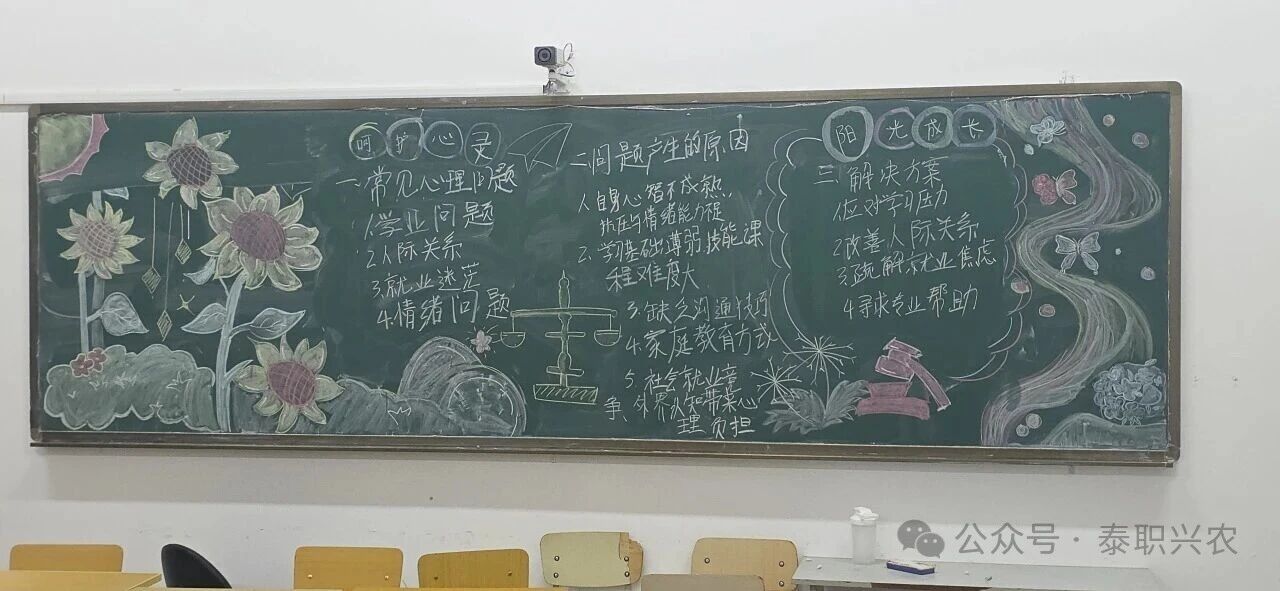 呵护心灵
一、常见心理问题
1.学业问题
2.人际关系
3.就业迷茫
4.情绪问题
二问题产生的原因
1.自身心智不成熟
抗压与情绪能力
2.学习基础薄弱,技能课
程难度大
3.缺乏沟通技巧
4.家庭教育方式
5.社会就业竞
争、外界认知带来心
理负担
阳光成长
三解决方案
1.应对学习压力
2.改善人际关系
3.疏解就业焦虑
4.寻求专业帮助
公众号·泰职兴农